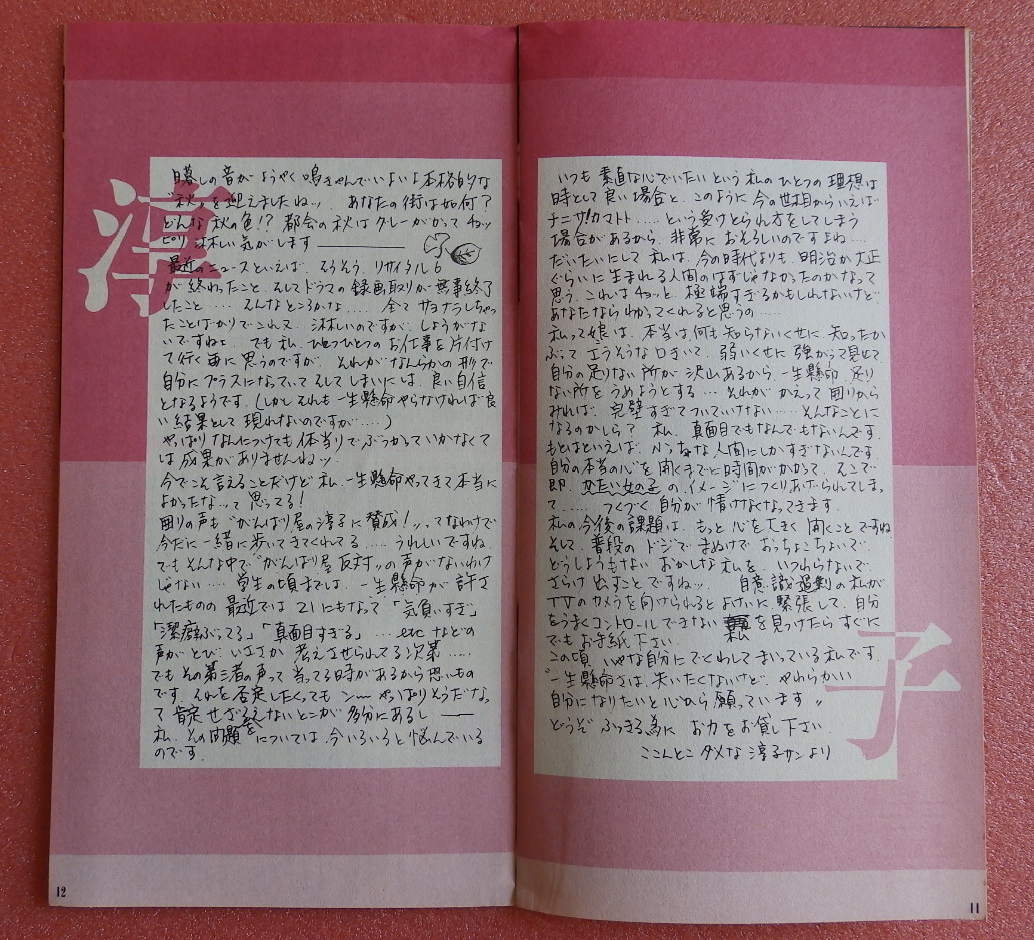 淳
日暮しの音がようやく鳴きやんでいよいよ本格的な
“秋”を迎えましたねッ. あなたの街は如何?
どんな秋の色!? 都会の秋はグレーがかってねッ
ピリ淋しい気がします
最近のニュースといえば、そうそう、リサイタル6
が終わったこと、そしてドラマの録画取りが無事終了
したこと..... そんなところかな.... 全てサヨナラしちゃっ
たことばかりでこれまた淋しいのですが、しょうがな
いですねェ. でも私、ひとつひとつのお仕事を片付け
て行く毎に思うのですが、それがなんらかの形で
自分にプラスになっていてそしてしまいには、良い自信
となるようです.(しかしそれも一生懸命やらなければ良
い結果として現れないのですが....)
やっぱりなんにつけても体当りでぶつかっていかなくて
は成果がありませんねッ.
今でこそ言えることだけど私、一生懸命やってきて本当に
よかったなぁって思ってる!
囲りの声も“がんばり屋の淳子に賛成!”ってなわけで
今だに一緒に歩いてきてくれてる.... うれしいですね.
でもそんな中で“がんばり屋反対”の声がないわけ
じゃない.... 学生の頃までは、一生懸命が許さ
れたものの最近では21にもなって「気負いすぎ」
「潔癖ぶってる」「真面目すぎる」....etcなどの
声がとび、いささか考えさせられてる次第.....
でもその第三者の声って当ってる時があるから恐いもの
です. それを否定したくってもン〜やっぱりそうだなっ
て肯定せざるえないとこが多分にあるし
私、その問題については、今いろいろと悩んでいる
のです.
12
いつも素直な心でいたいという私のひとつの理想は
時として良い場合と、このように今の世相からいえば
ナニサ!カマトト.....という受けとられ方をしてしまう
場合があるから、非常におそろしいのですよね....
だいたいにして私は、今の時代よりも、明治か大正
ぐらいに生まれる人間のはずじゃなかったのかなって
思う. これはちょッと極端すぎるかもしれないけど、
あなたならわかってくれると思うの.....
私って娘は、本当は何も知らないくせに知ったか
ぶって立うそうな口きいて、弱いくせに強がって見せて
自分の足りない所が沢山あるから、一生懸命、足り
ない所をうめようとする... それがかえって囲りから
みれば、完璧すぎてついていけない..... そんなことに
なるのかしら? 私、真面目でもなんでもないんです.
もとはといえば、ルーズな人間にしかすぎないんです.
自分の本当の心を開くまでに時間がかかって、そこで
即、かたい女の子のイメージにつくりあげられてしまっ
て..... つくづく自分が情けなくなってきます.
私の今後の課題は、もっと心を大きく開くことですね
そして、普段のドジでまぬけでおっちょこちょいで
どうしようもないおかしな私を、いつわらないで
さらけ出すことですねッ. 自意識過剰の私が
TVのカメラを向けられるとよけいに緊張して、自分
をうまくコントロールできない私を見つけたらすぐに
でもお手紙下さい.
この頃いやな自分にでくわしてまいっている私です.
“一生懸命さは、失いたくないけど、やわらかい
自分になりたいと心から願っています”
どうぞふっきる為にお力をお貸し下さい
ここんとこダメな淳子サンより
子
11